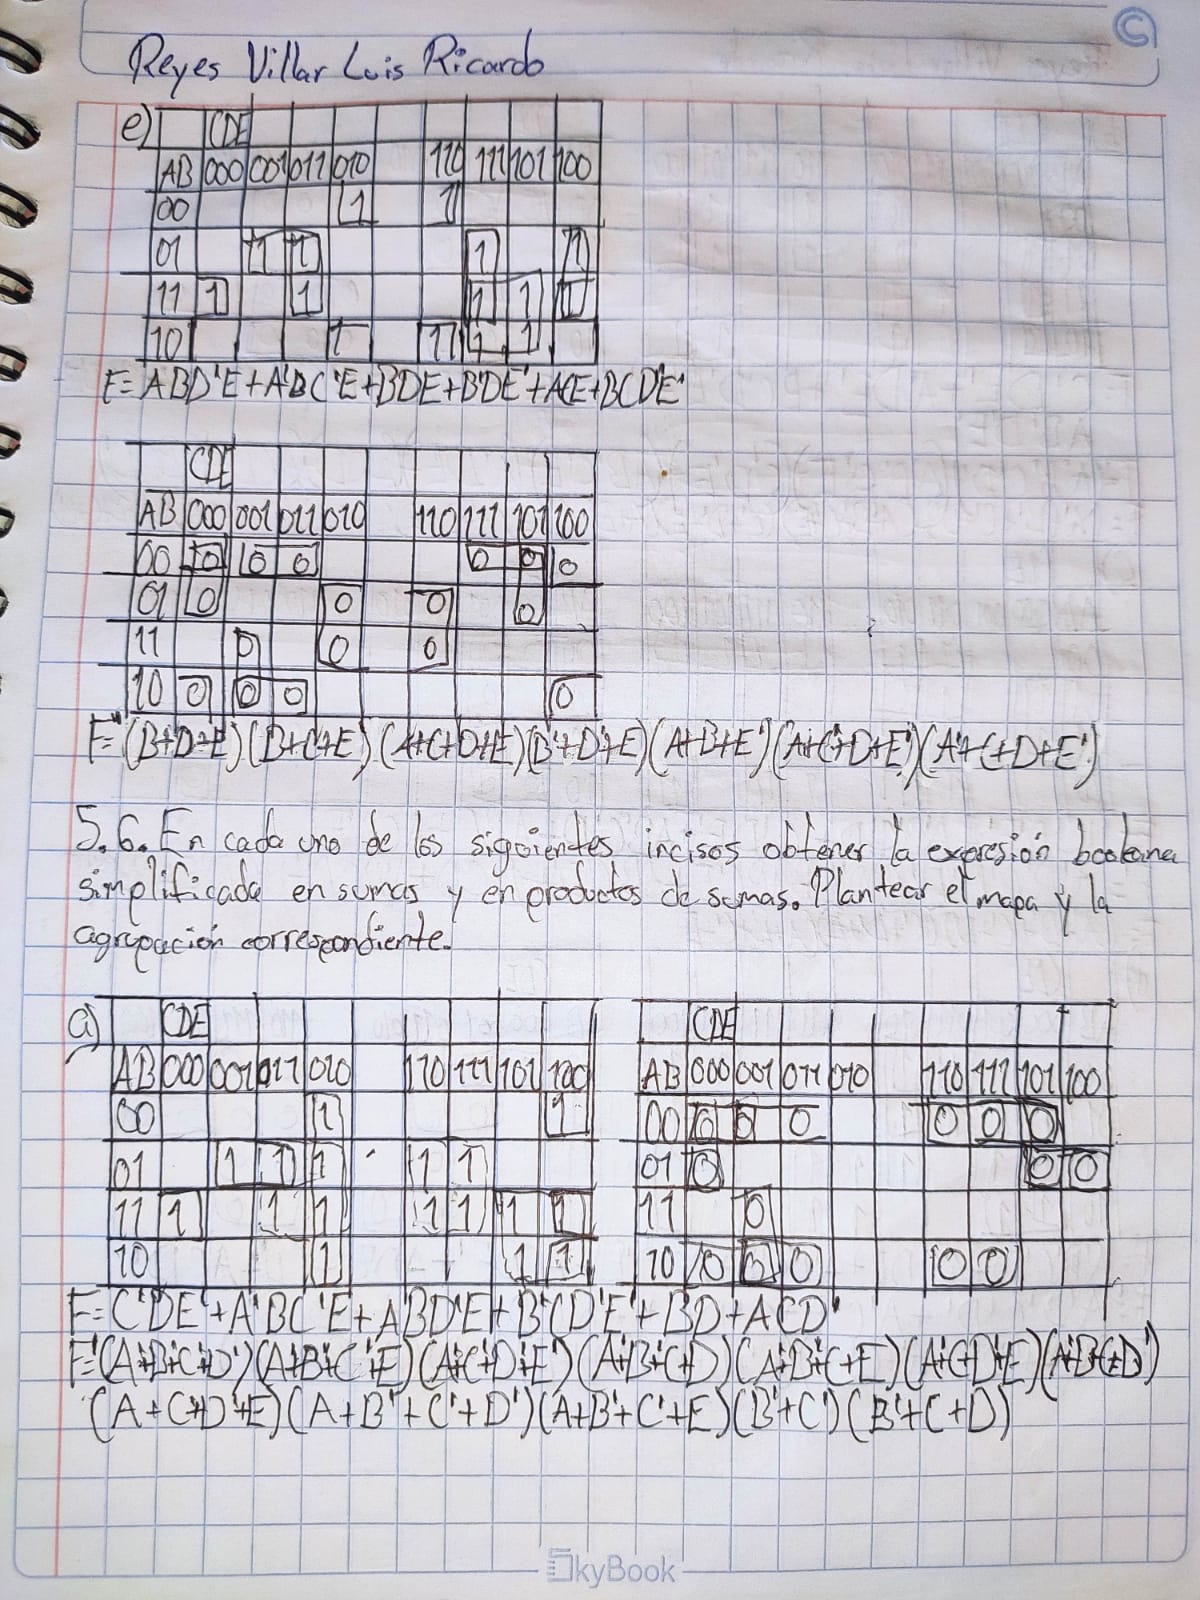 Reyes Villar Luis Ricardo
e) CDE
AB 000 001 011 010 110 111 101 100
00 1 1
01 1 1 1 1
11 1 1 1 1 1
10 1 1 1 1
F= ABD'E+A'BC'E+BDE+B'DE'+ACE+BCD'E'
CDE
AB 000 001 011 010 110 111 101 100
00 0 0 0 0 0 0
01 0 0 0 0
11 0 0 0
10 0 0 0 0
F=(B+D+E)(B+C+E')(A+C+D+E)(B'+D'+E)(A+B+E')(A+C'+D+E')(A'+C+D+E')
5.6. En cada uno de los siguientes incisos obtener la expresión booleana
simplificada en sumas y en productos de sumas. Plantear el mapa y la
agrupación correspondiente.
a) CDE CDE
AB 000 001 011 010 110 111 101 100 AB 000 001 011 010 110 111 101 100
00 1 1 00 0 0 0 0 0 0
01 1 1 1 1 1 01 0 0 0
11 1 1 1 1 1 1 1 11 0
10 1 1 1 10 0 0 0 0 0
F=C'DE'+A'BC'E+ABD'E'+B'CD'E'+BD+ACD'
(A+C'+D'+E)(A+B'+C'+D')(A+B'+C'+E)(B'+C')(B'+C+D)
SkyBook